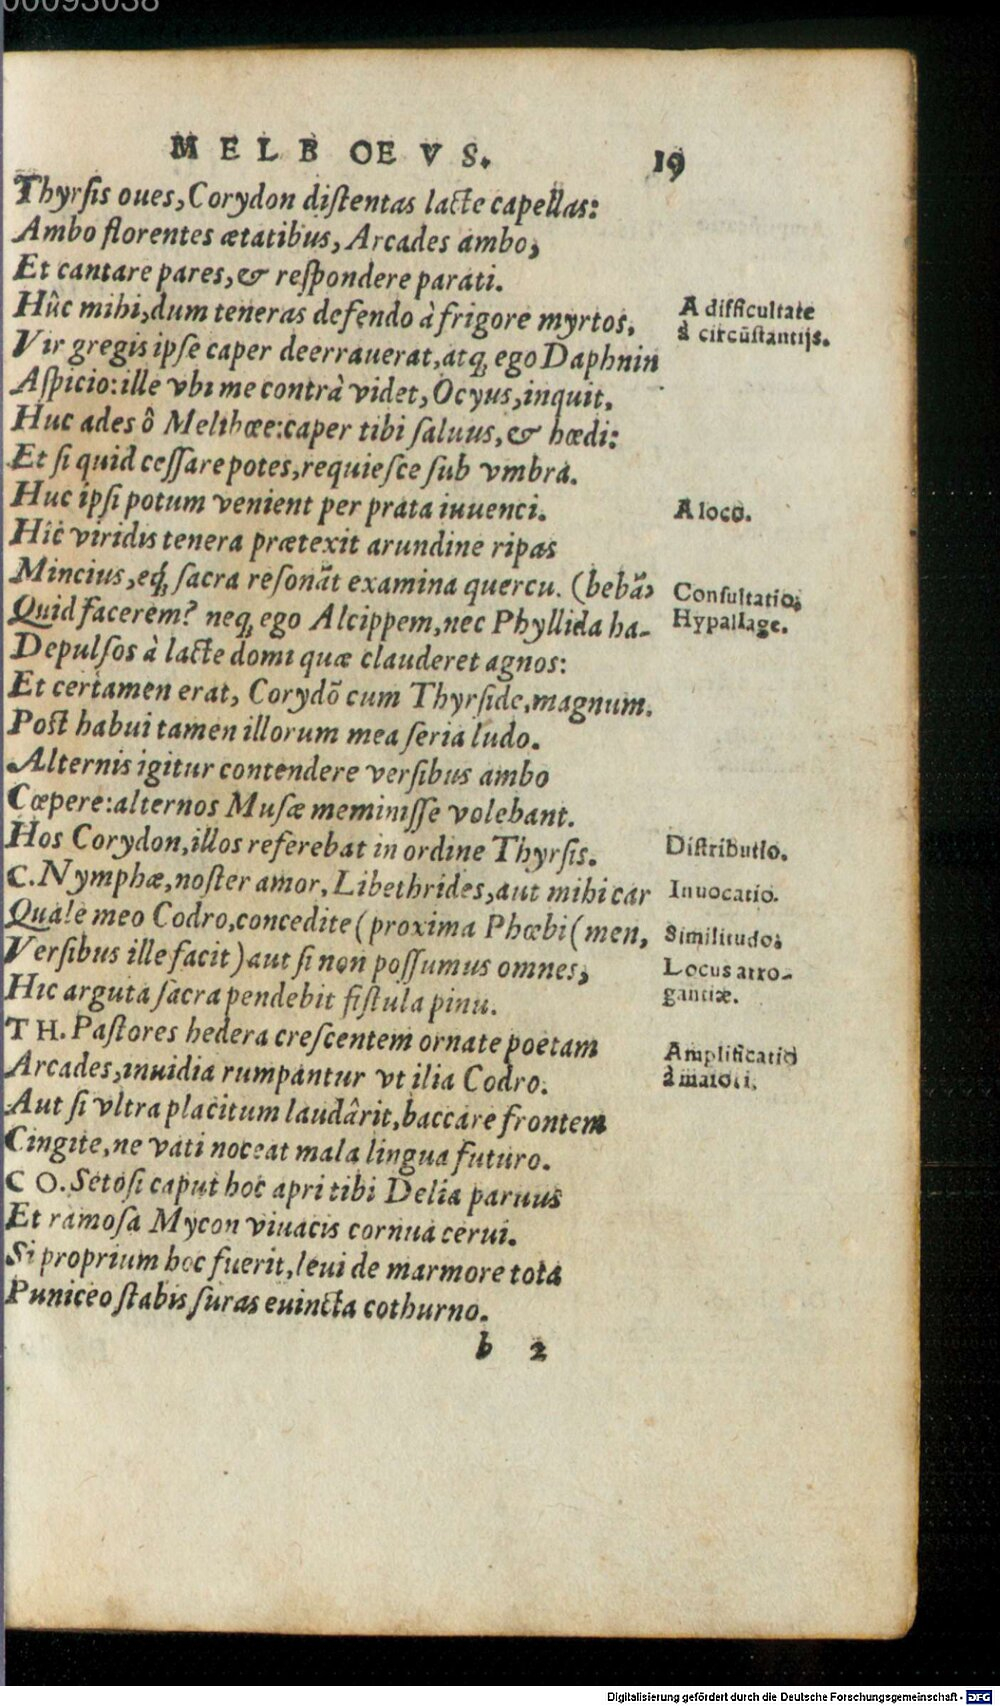 00093038
MELBOEVS. 19
Thyrſis oues, Corydon diſtentas lacte capellas:
Ambo florentes ætatibus, Arcades ambo,
Et cantare pares, & reſpondere parati.
Hûc mihi, dum teneras defendo à frigore myrtos,
A difficultate
Vir gregis ipſe caper deerrauerat, atq; ego Daphnin
à circūſtantijs.
Aſpicio: ille vbi me contrà videt, Ocyus, inquit,
Huc ades ô Meliboee: caper tibi ſaluus, & hœdi:
Et ſi quid ceſſare potes, requieſce ſub vmbra.
Huc ipſi potum venient per prata iuuenci.
A loco.
Hîc viridis tenera prætexit arundine ripas
Mincius, eq; ſacra reſonãt examina quercu. (bebã,
Conſultatio,
Quid facerem? neq; ego Alcippem, nec Phyllida ha-
Hypallage.
Depulſos à lacte domi quæ clauderet agnos:
Et certamen erat, Corydõ cum Thyrſide, magnum.
Poſt habui tamen illorum mea ſeria ludo.
Alternis igitur contendere verſibus ambo
Cœpere: alternos Muſæ meminiſſe volebant.
Hos Corydon, illos referebat in ordine Thyrſis.
Diſtributio.
C. Nymphæ, noſter amor, Libethrides, aut mihi car
Inuocatio.
Quale meo Codro, concedite (proxima Phœbi (men,
Similitudo;
Verſibus ille facit) aut ſi non poſſumus omnes,
Locus arro-
Hic arguta ſacra pendebit fiſtula pinu.
gantiæ.
TH. Paſtores hedera creſcentem ornate poetam
Amplificatio
Arcades, inuidia rumpantur vt ilia Codro.
à maiori.
Aut ſi vltra placitum laudârit, baccare frontem
Cingite, ne vati noceat mala lingua futuro.
CO. Setoſi caput hoc apri tibi Delia paruus
Et ramoſa Mycon viuacis cornua cerui.
Si proprium hoc fuerit, leui de marmore tota
Puniceo ſtabis ſuras euincta cothurno.
b 2
Digitalisierung gefördert durch die Deutsche Forschungsgemeinschaft - DFG